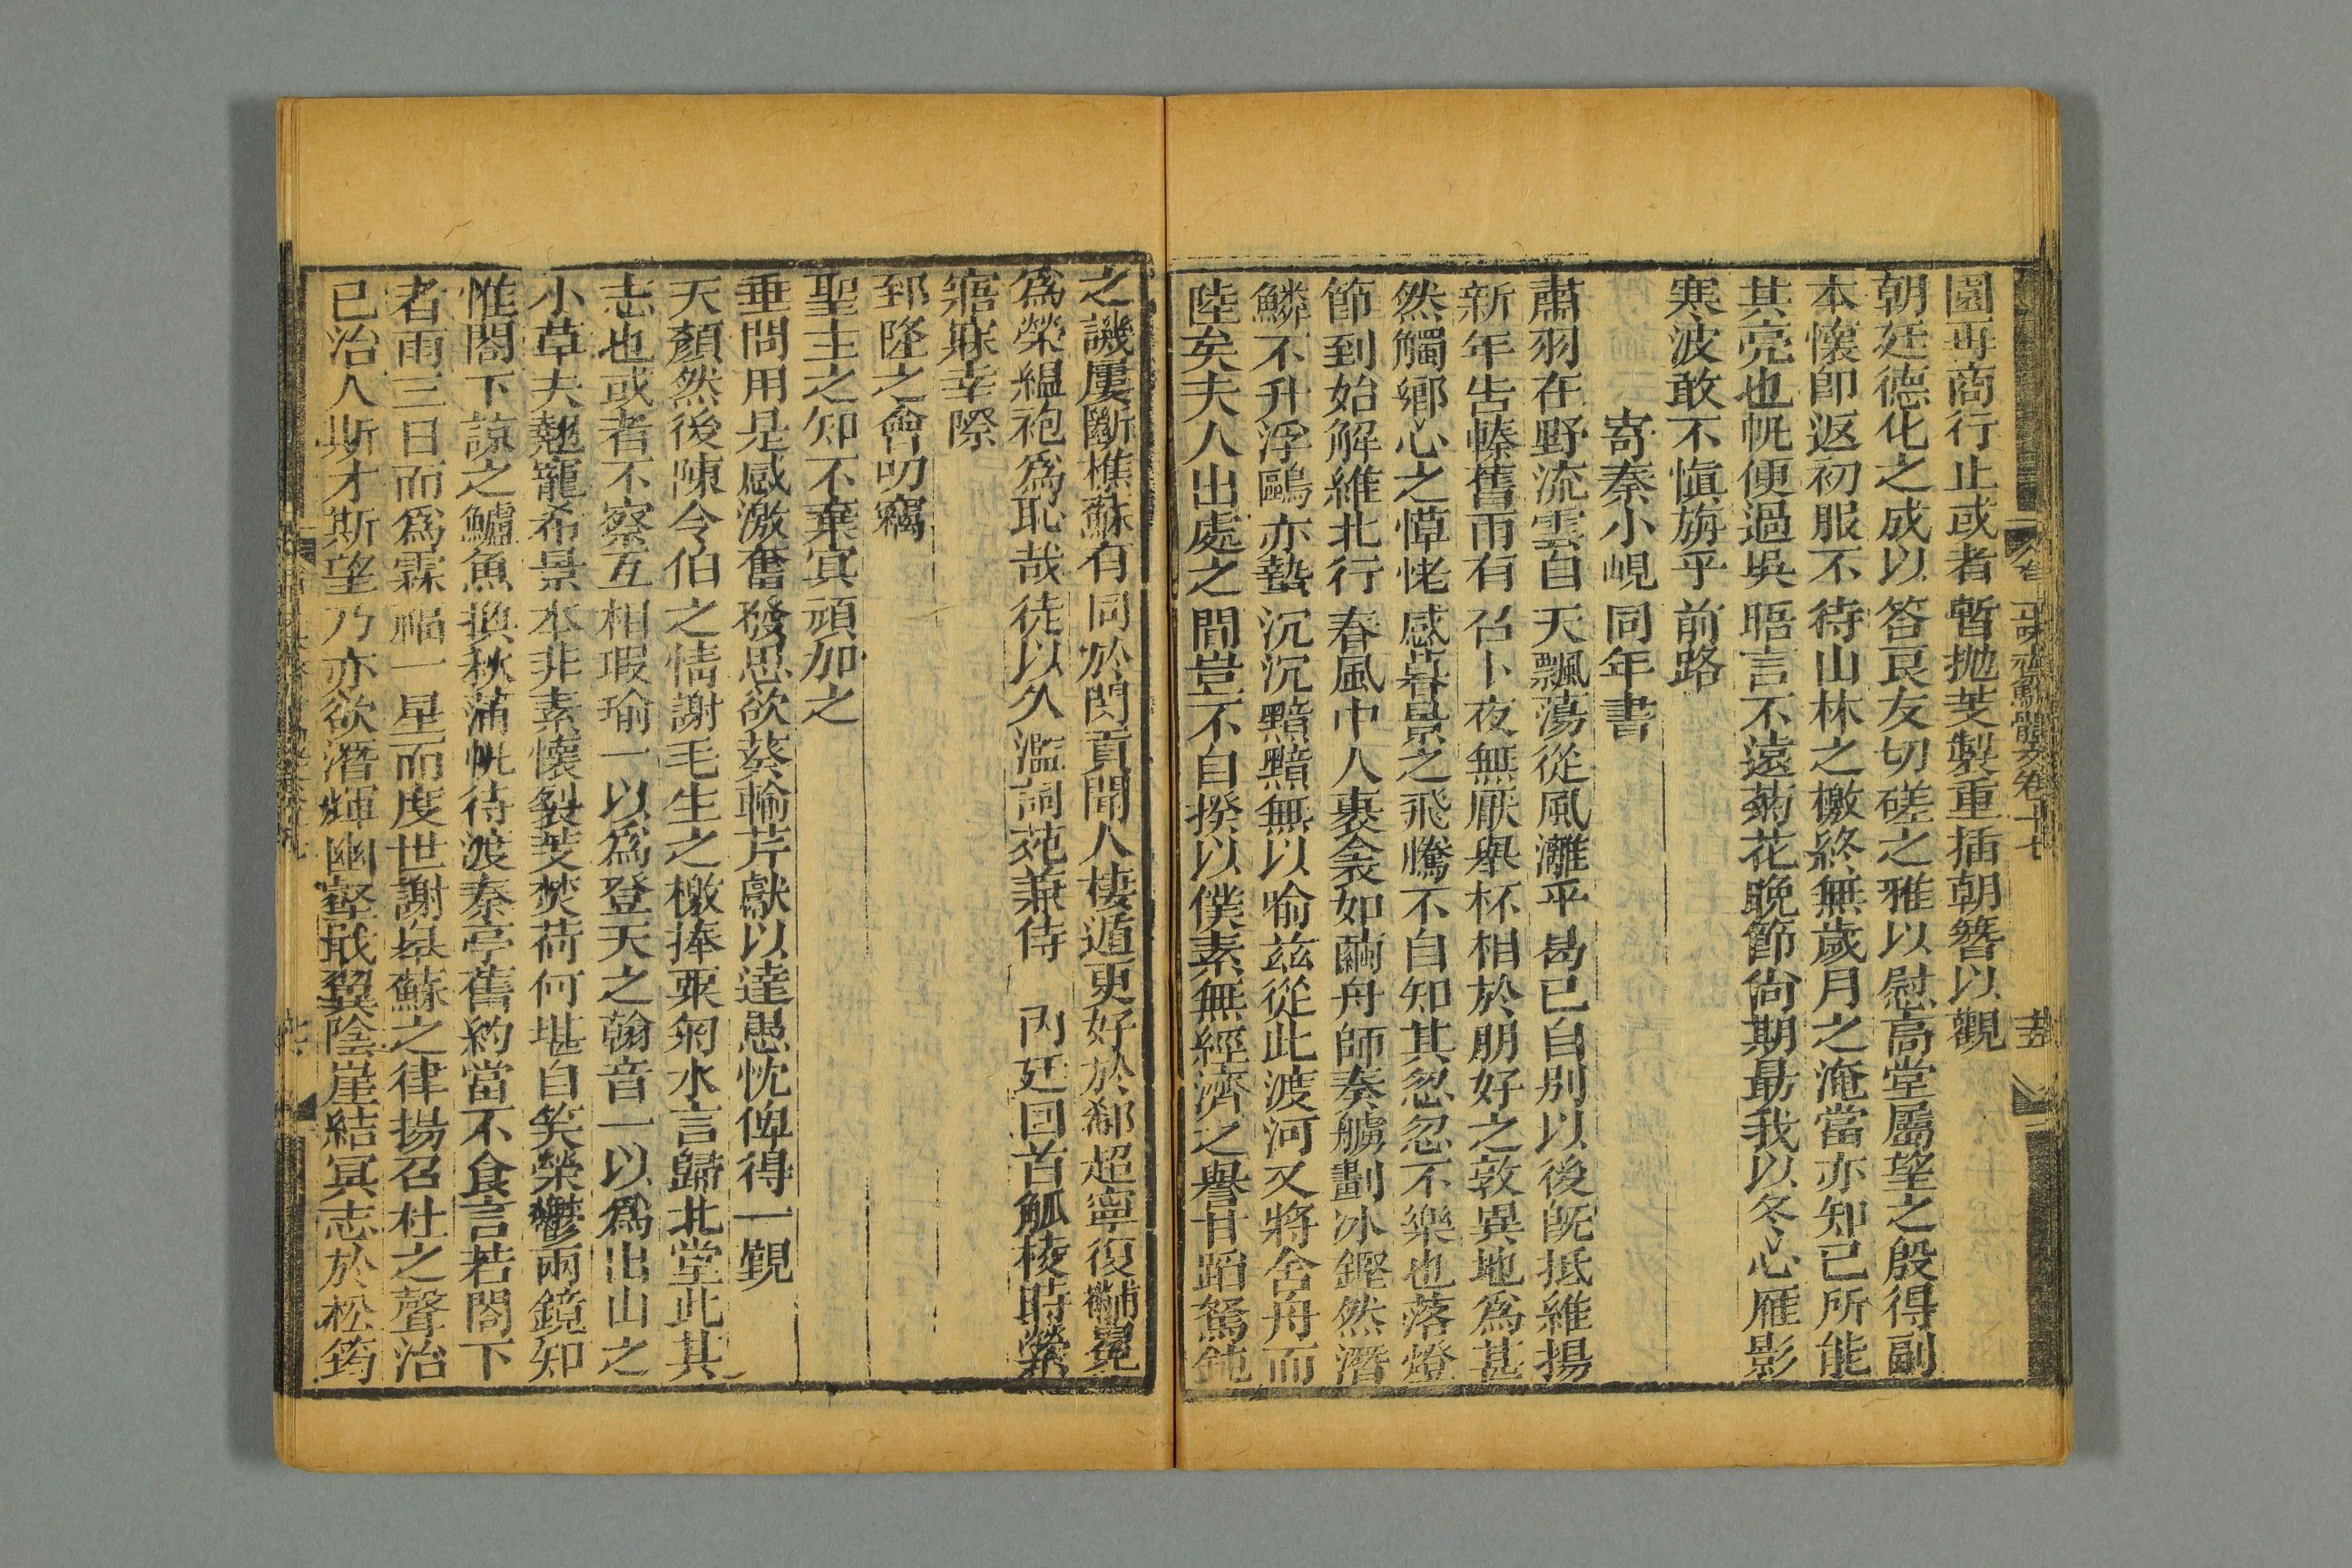 園再商行止或者暫拋芰製重插朝簪以觀
朝廷德化之成以答良友切磋之雅以慰高堂屬望之殷得副
本懷卽返初服不待山林之檄終無歲月之淹當亦知已所能
其亮也帆便過吳晤言不遠菊花晚節尙期勗我以冬心雁影
寒波敢不愼旃乎前路
寄秦小峴同年書
肅羽在野流雲自天飄蕩從風離乎曷已自别以後旣抵維揚
新年吿暮舊雨有召卜夜無厭舉杯相於朋好之敦異地爲甚
然觸鄉心之憚恅感暮景之飛騰不自知其忽忽不樂也落燈
節到始解維北行春風中人裹衾如繭舟師奏艣劃冰鏗然潛
鱗不升浮鷗亦蟄沉沉黯黯無以喻兹從此渡河又將舍舟而
陸矣夫人出處之間豈不自揆以僕素無經濟之譽甘蹈駑鈍
之譏屢斷樵蘇有同於閔貢聞人棲遁更好於郗超寧復黼冕
爲榮緼袍爲恥哉徒以久濫詞苑兼侍 內廷回首觚棱時縈
寤寐幸際
郅隆之會叨竊
聖主之知不棄寘頑加之
垂問用是感激奮發思欲葵輸芹獻以達愚忱俾得一覲
天顏然後陳令伯之情謝毛生之檄捧粟匊水言歸北堂此其
志也或者不察互相瑕瑜一以爲登天之翰音一以爲出山之
小草夫翹寵希景本非素懷裂芰焚荷何堪自笑榮鬱兩鏡知
惟閤下諒之鱸魚換秋蒲帆待渡秦亭舊約當不食言若閤下
者雨三日而爲霖福一星而度世謝皋蘇之律揚召杜之聲治
已治人斯才斯望乃亦欲潛輝幽壑戢翼陰崖結冥志於松筠